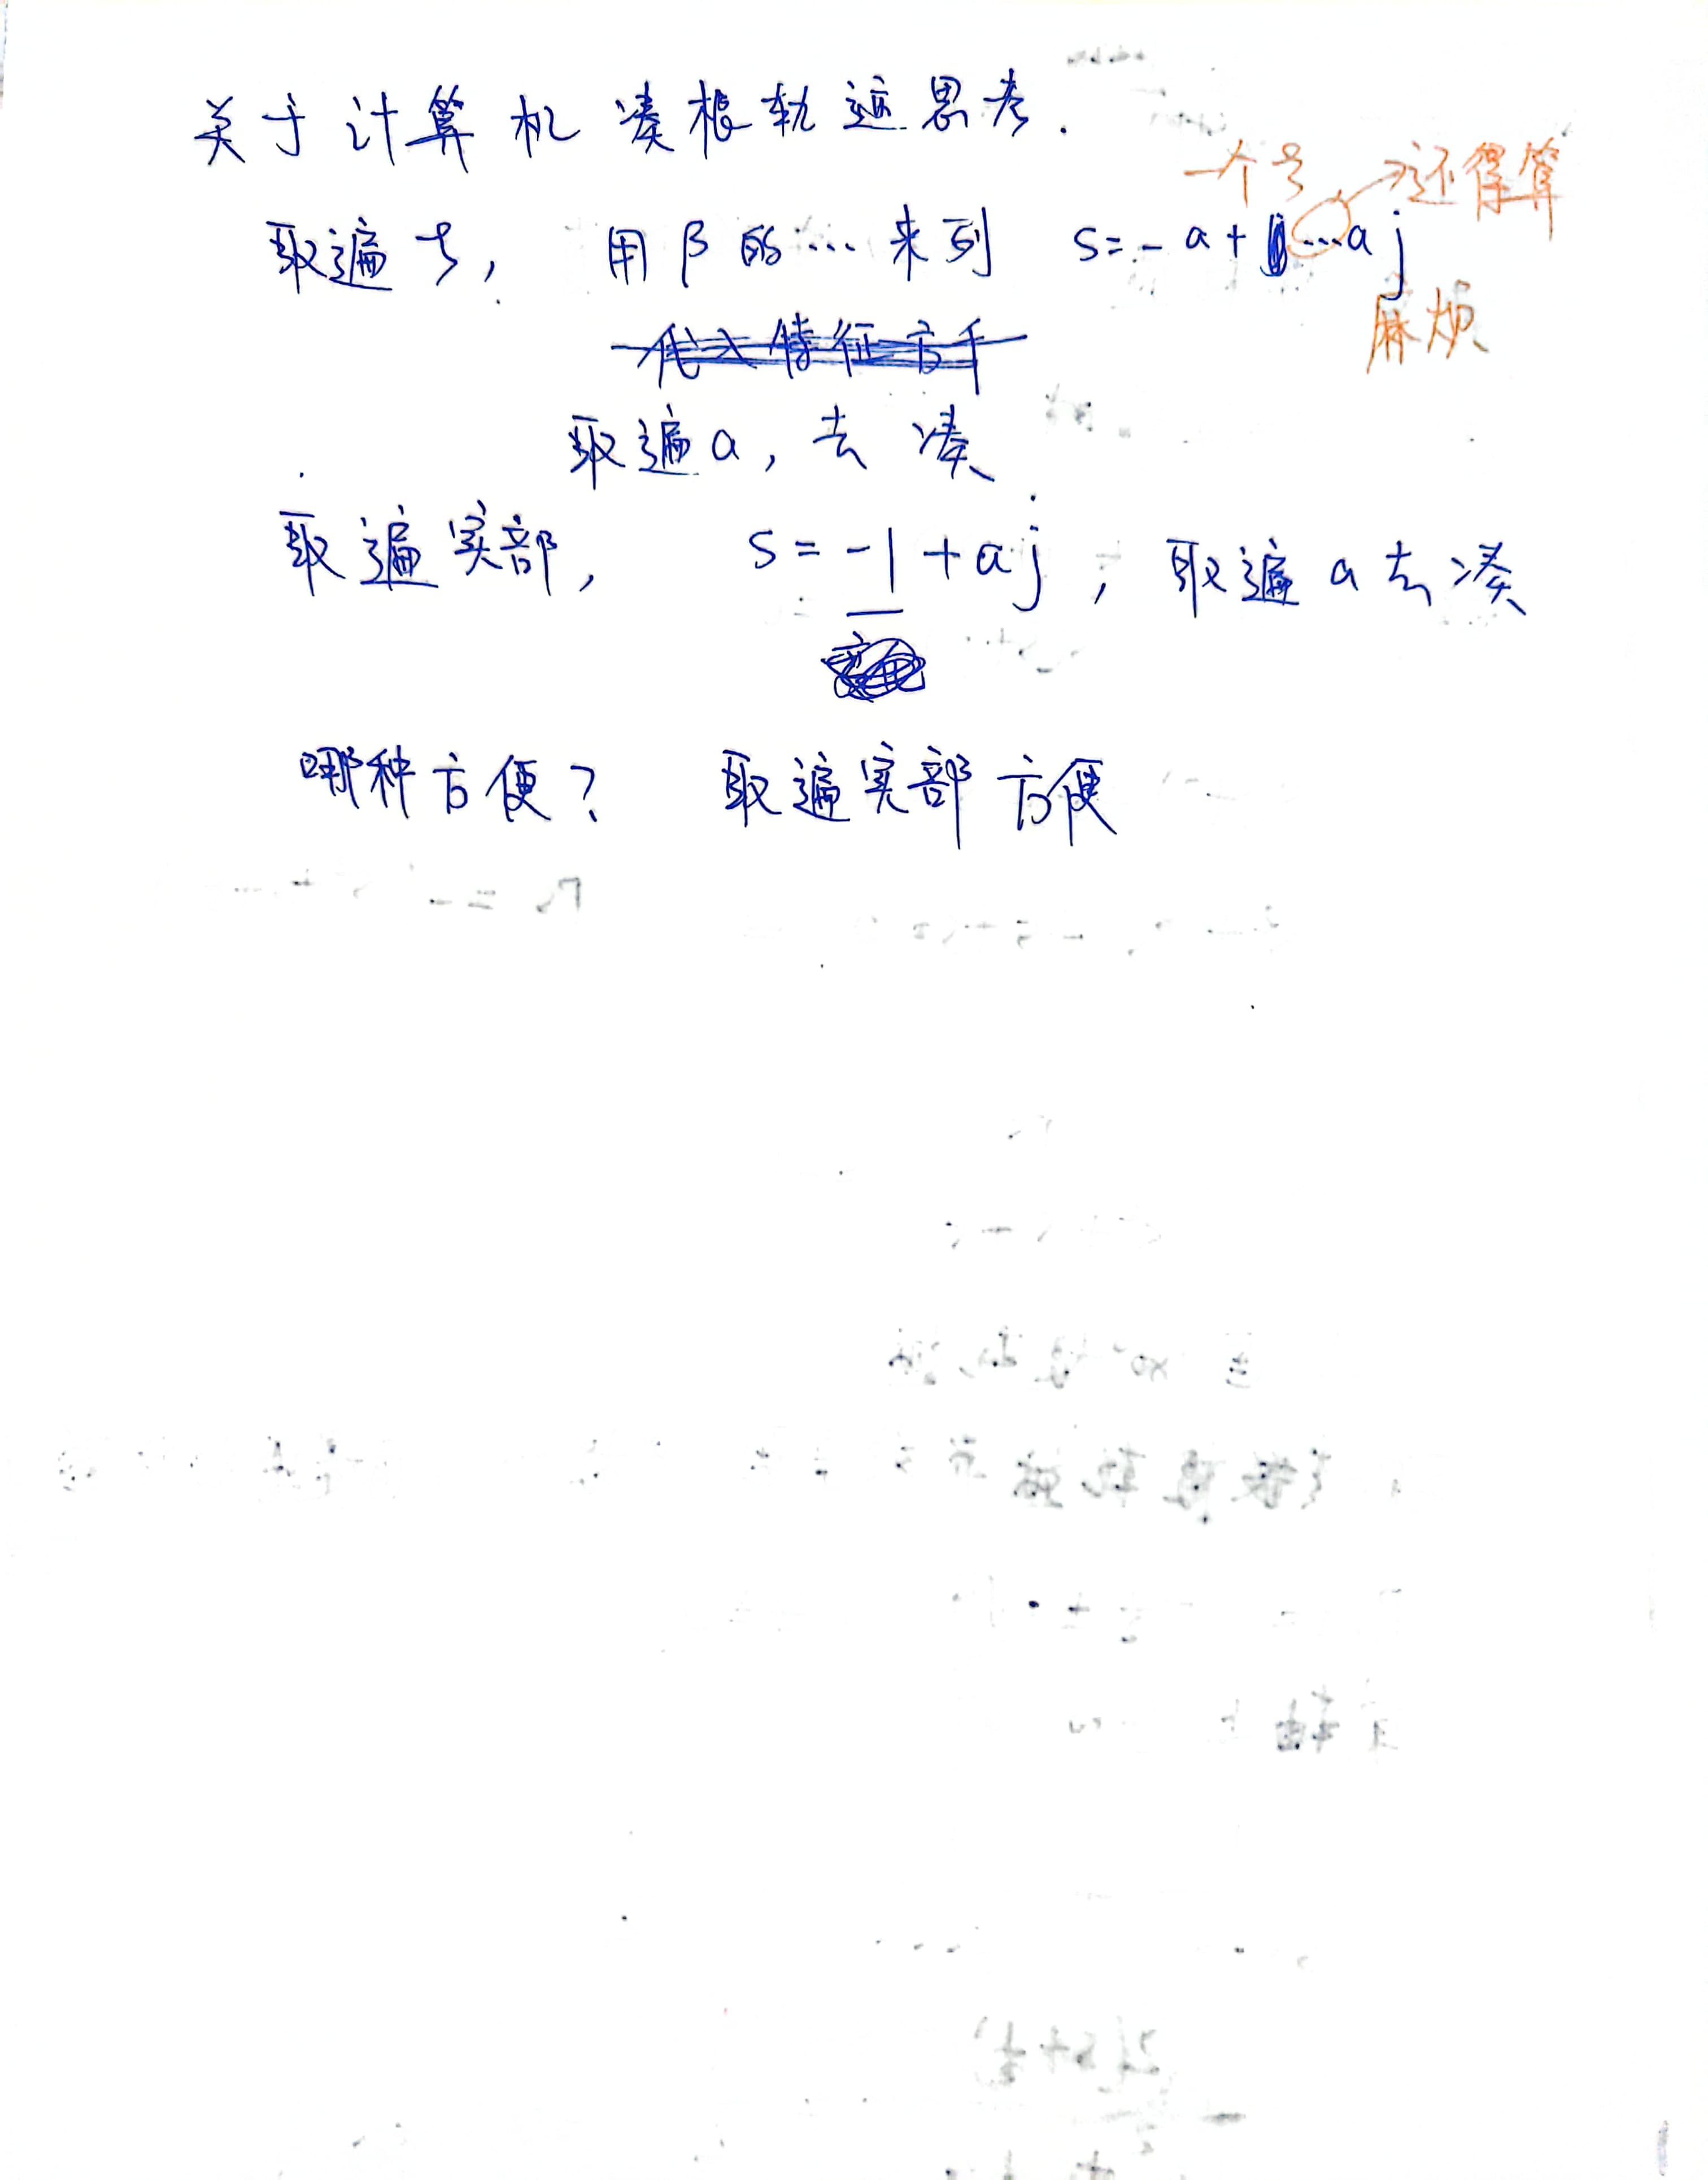 关于计算机凑根轨迹思考.
一个ξ 还得算
取遍ξ, 用β的…来列 s=-a+…aj
麻烦
代入特征方
取遍a,去凑
取遍实部, s=-1+aj,取遍a去凑
哪种方便? 取遍实部方便